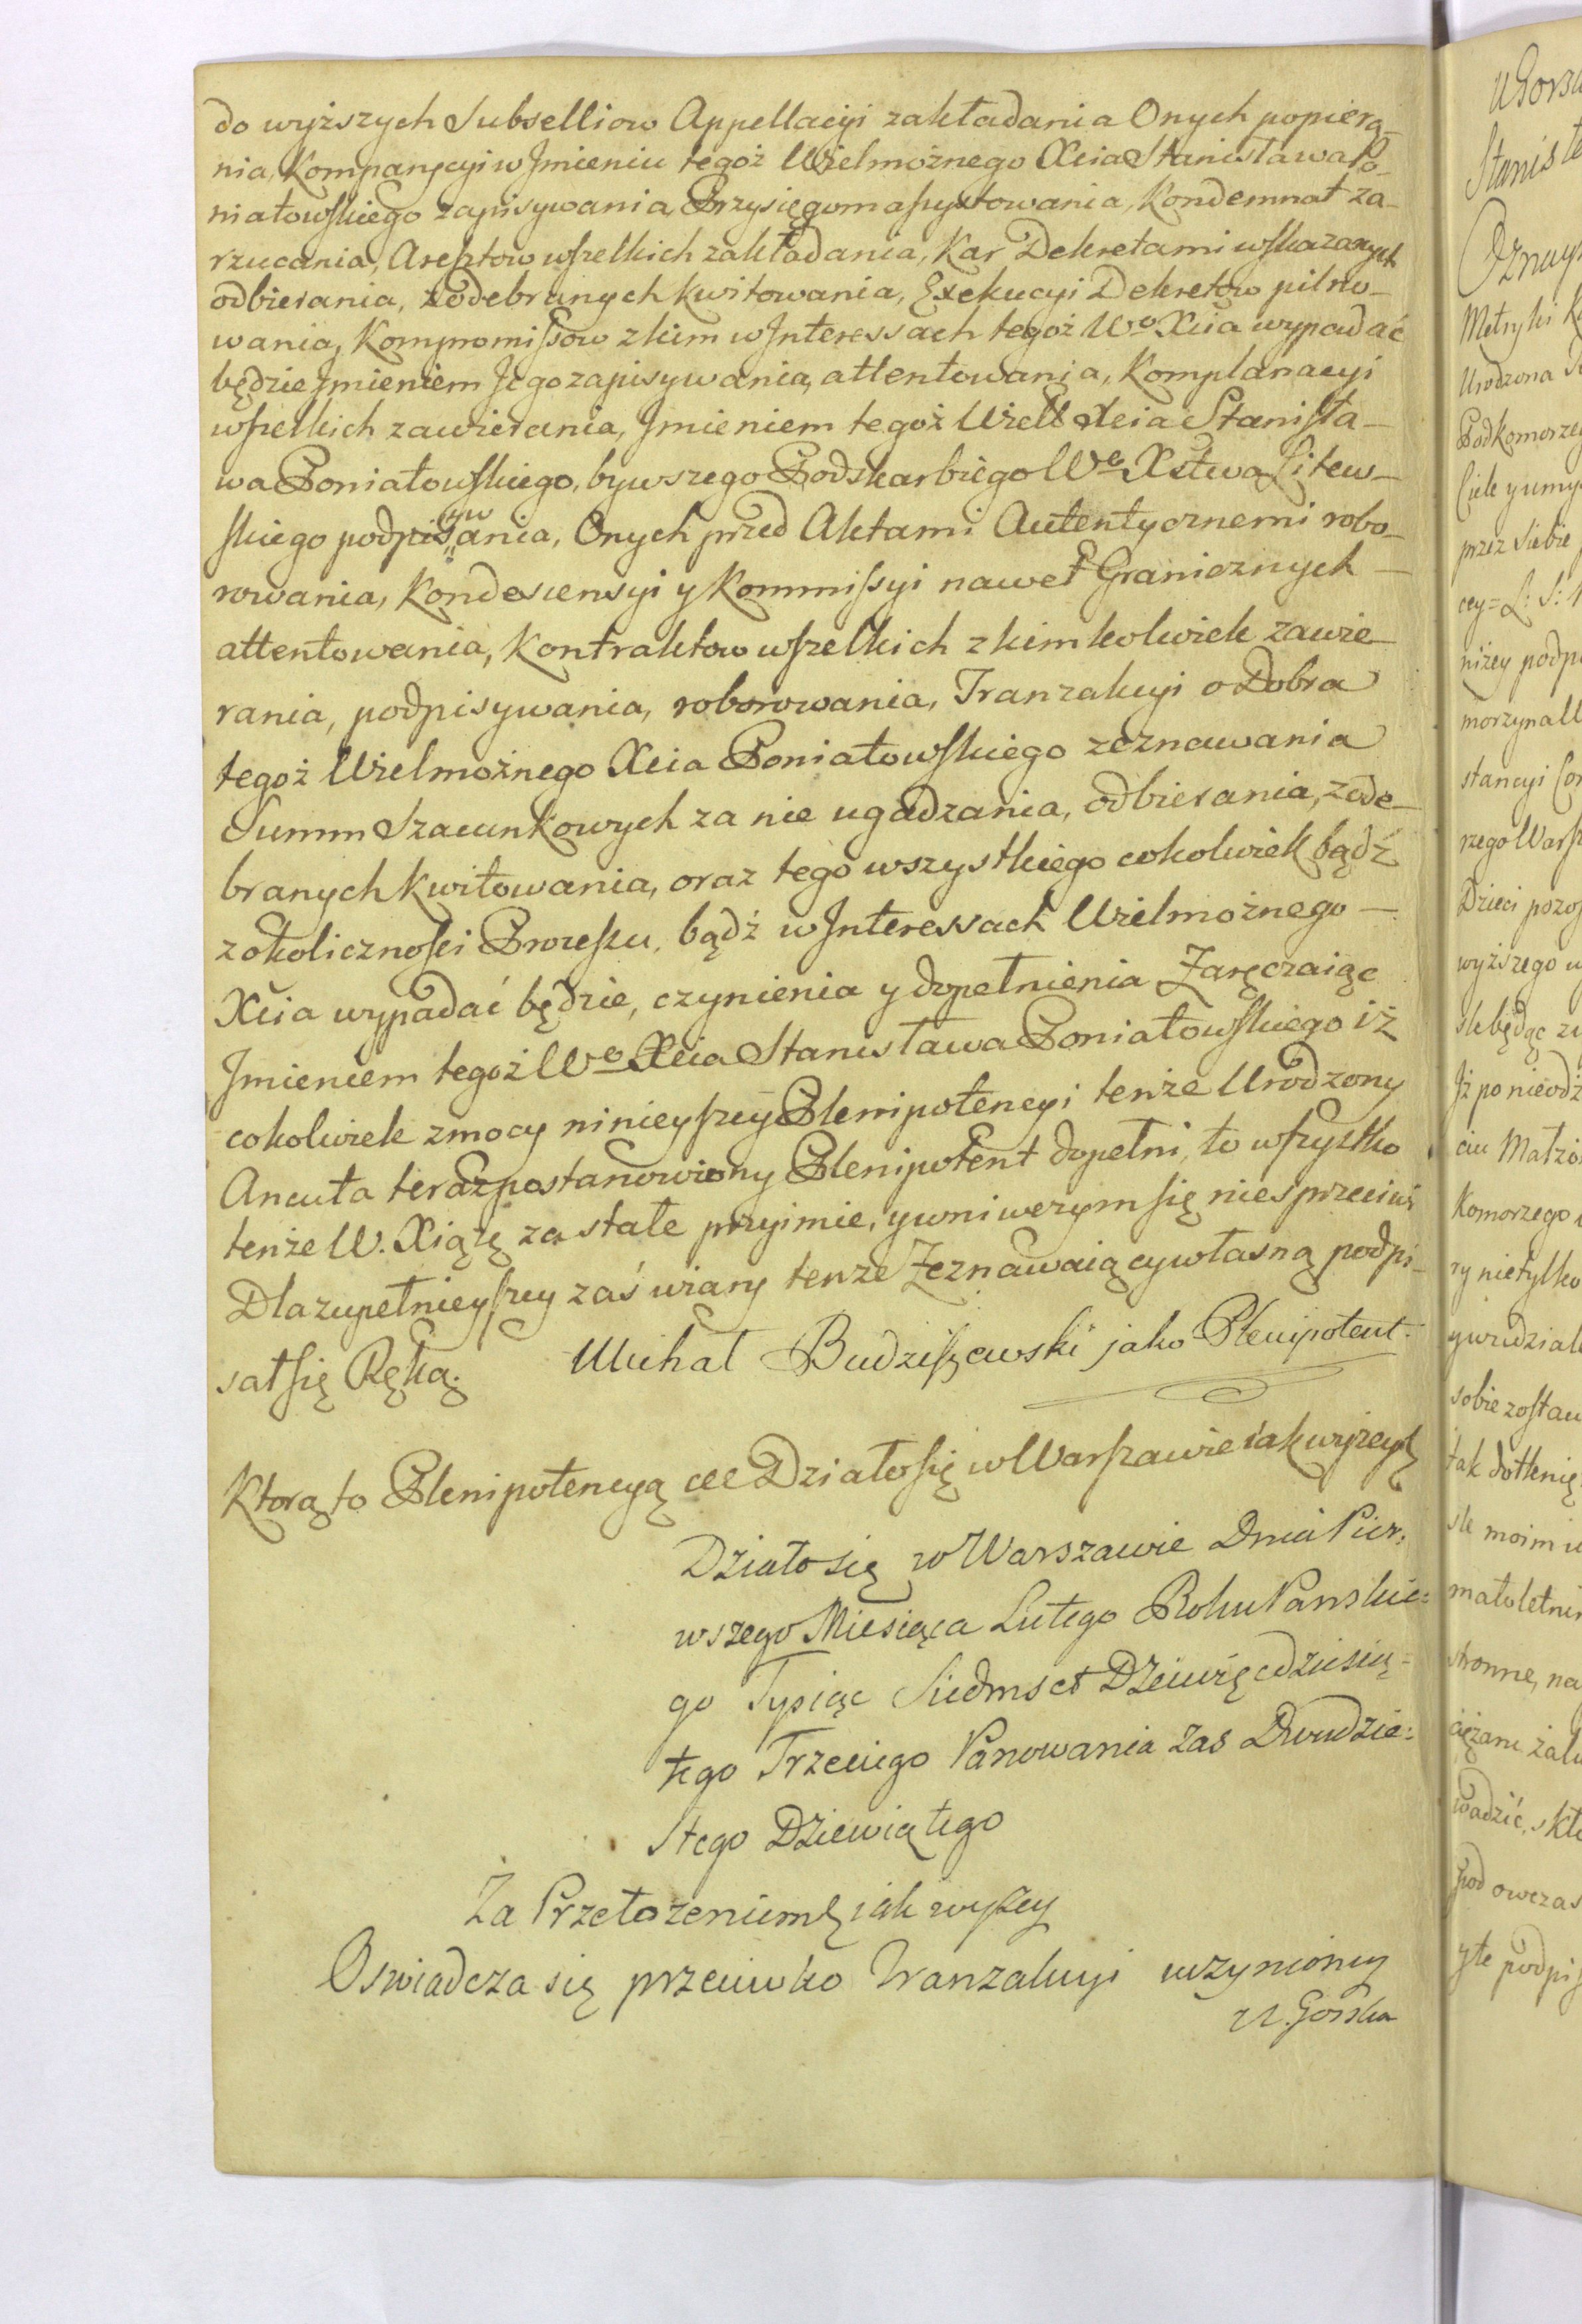 do wyższych Subselliow Appellacyi zakładania Onych popiera-
nia, Komparycyi w Jmieniu tegoż Wielmożnego Xcia Stanisława Po-
niatowskiego zapisywania, Przysięgom assystowania, Kondemnat za-
rzucania, Aresztow wszelkich zakładania, Kar Dekretami wskazanych
odbierania, z odebranych kwitowania, Exekucyi Dekretow pilno-
wania, Kompromissow z kim w Jnteressach tegoż Wo Xcia wypadać
będzie Jmieniem Jego zapisywania, attentowania, Komplanacyi
wszelkich zawierania, Jmieniem tegoż Xcia Stanisła-
wa Poniatowskiego, bywszego Podskarbiego Wo Xstwa Litew-
skiego podpisywania, Onych przed Aktami Autentycznemi robo-
rowania, Kondescensyi y Kommissyi nawet Granicznych —
attentowania, Kontraktow wszelkich z kimkolwiek zawie-
rania, podpisywania, roborowania, Tranzakcyi o Dobra
tegoż Wielmożnego Xcia Poniatowskiego zeznawania
Summ Szacunkowych za nie ugadzania, odbierania, z ode-
branych kwitowania, oraz tego wszystkiego cokolwiek bądź
z okolicznosci Processu, bądź w Jnteressach Wielmożnego —
Xcia wypadać będzie, czynienia y dopełnienia Zaręczaiąc
Jmieniem tegoż Wo Xcia Stanisława Poniatowskiego iż
cokolwiek z mocy ninieyszey Plenipotencyi tenże Urodzony
Ancuta teraz postanowiony Plenipotent dopełni, to wszystko
tenże W. Xiążę za stałe przyimie, y w niwczym się nie sprzeciwi
Dla zupełnieyszey zaś wiary tenże Zeznawaiący własną podpi-
sał się Ręką. Michał Budziszewski jako Plenipotent.
Ktorą to Plenipotencyą Działo się w Warszawie iak wyżey
Działo się w Warszawie Dnia Pier,
wszego Miesiąca Lutego Roku Panskie=
go Tysiąc Siedmset Dziewięcdziesią=
tego Trzeciego Panowania Zas Dwudzie=
stego Dziewiątego
Za Przełożeniem iak wyżey
Oswiadcza się przeciwko Tranzakcyi uczynioney
U. Gorska
u Gorsk
Stanisł
Oznaym
Metryki K
Urodzona
Podkomorzeg
Ciele y umy
przez siebie
cey = L: S:
niżey podp
stancyi
rzego Warsz
Dzieci pozos
wyższego
Jż po nieodż
ciu Małżo
Komorzego
ry nietylko
y widział
sobie zostaw
małoletni
stronne, na
pod owczas